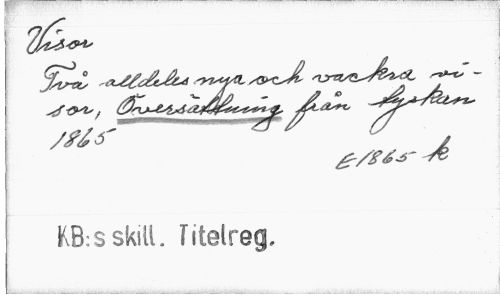 Visor
Två alldeles nya och vackra vi-
sor, Översättning från tyskan
1865
E1865 k
KB:s skill. Titelreg.